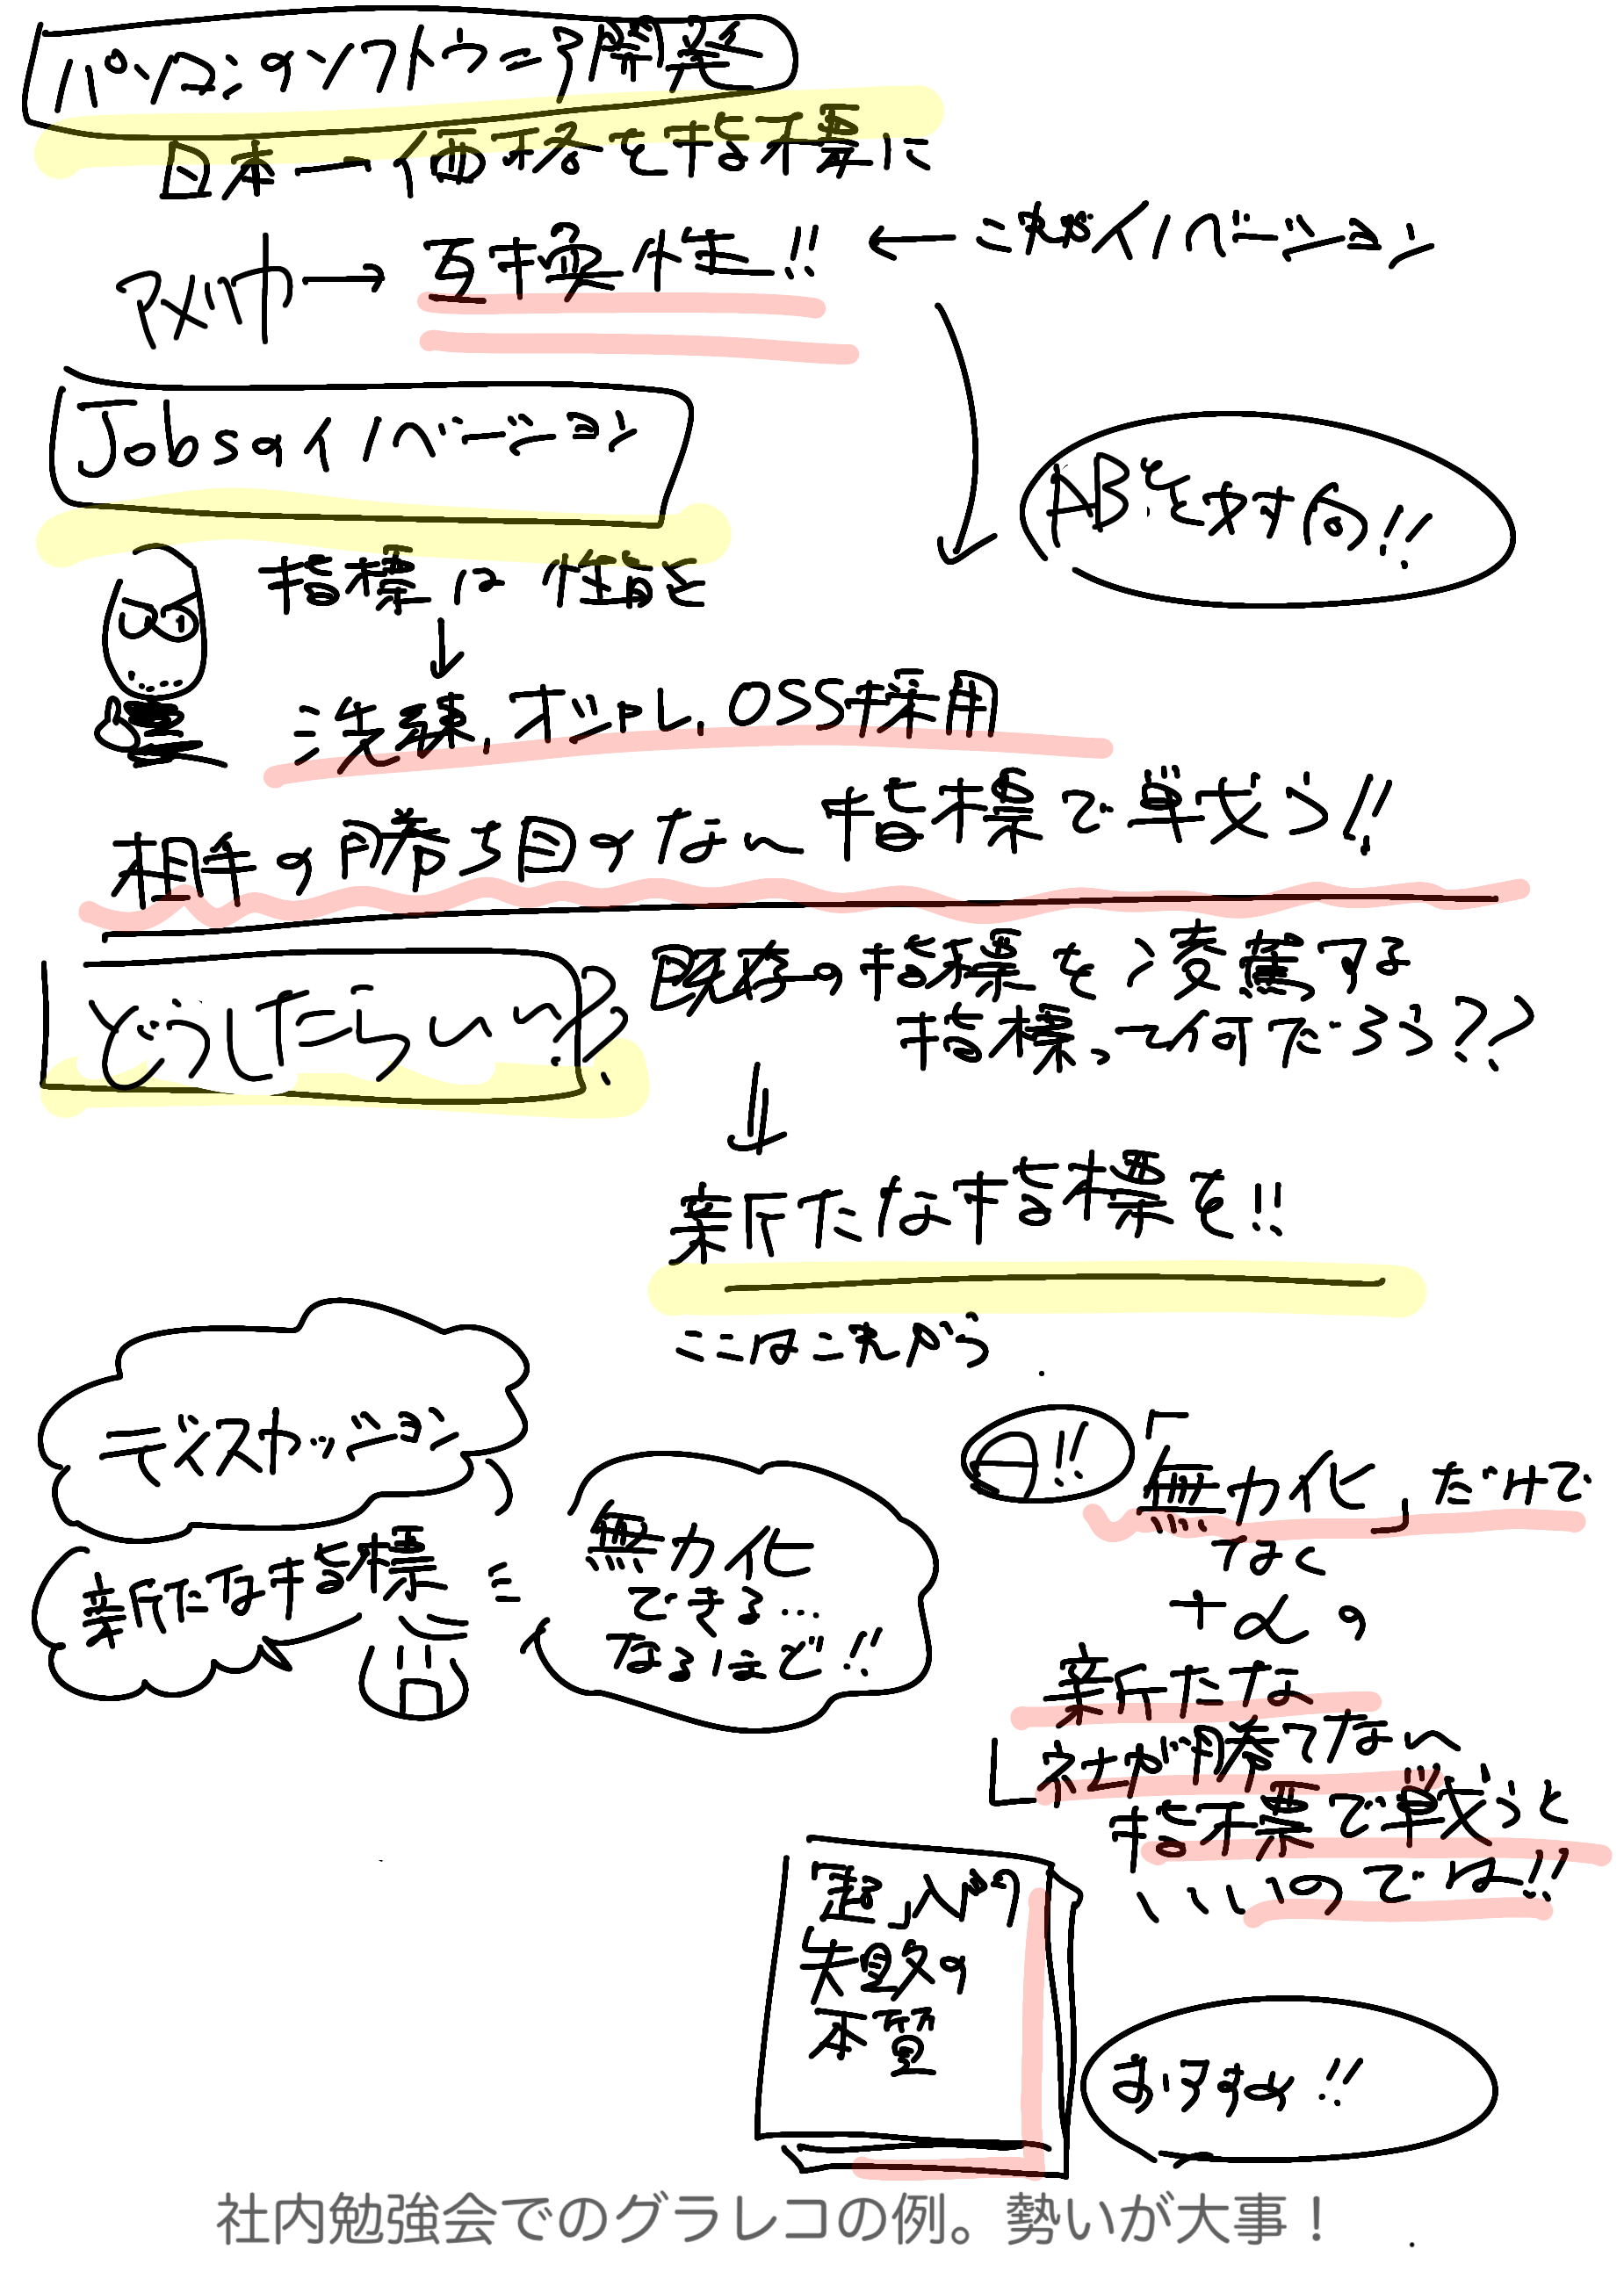 パソコンのソフトウェア開発
日本一価格を指標に
アメリカ→互換性!! ←これがイノベーション
Jobsのイノベーション
指標は性能を
↓
洗練,オシャレ,OSS採用
相手の勝ち目のない指標で戦う!!
どうしたらいい??
既存の指標を凌駕する
指標って何だろう??
新たな指標を!!
ここはこれから
ディスカッション
新たな指標
無力化
できる…
なるほど!!
A!!
「無力化」だけで
なく
+αの
新たな
L社が勝てない
指標で戦うと
いいのでは!!
「超」入門
失敗の
本質
おすすめ!!
社内勉強会でのグラレコの例。勢いが大事！